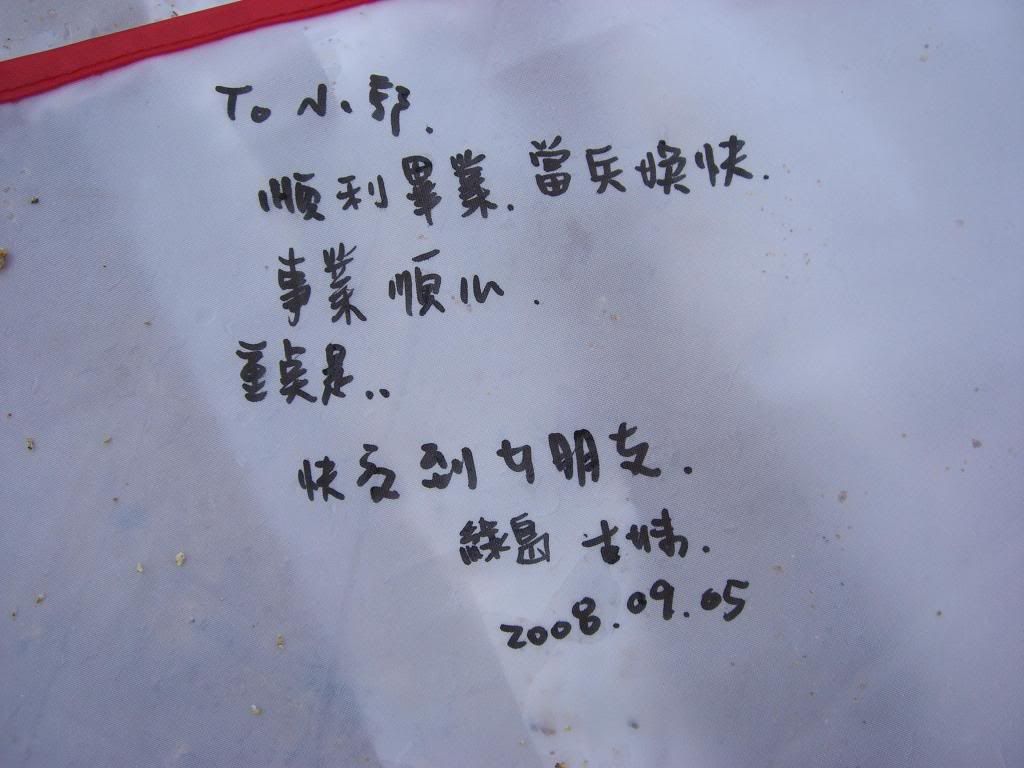 To 小郭.
順利畢業. 當兵愉快.
事業順心.
重点是..
快交到女朋友.
綠島 古妹.
2008.09.05